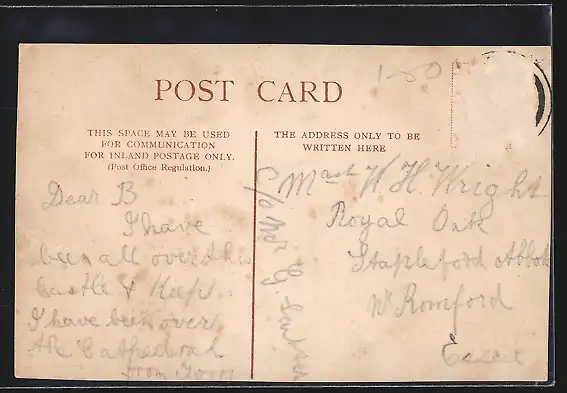 1-50
POST CARD
THIS SPACE MAY BE USED
FOR COMMUNICATION
FOR INLAND POSTAGE ONLY.
(Post Office Regulation.)
THE ADDRESS ONLY TO BE
WRITTEN HERE
Dear B
I have
been all over this
Castle & Keep.
I have been over
the Cathedral
from
c/o Mr G.
Mast W H Wright
Royal Oak
Stapleford Abbots
Nr Romford
Essex